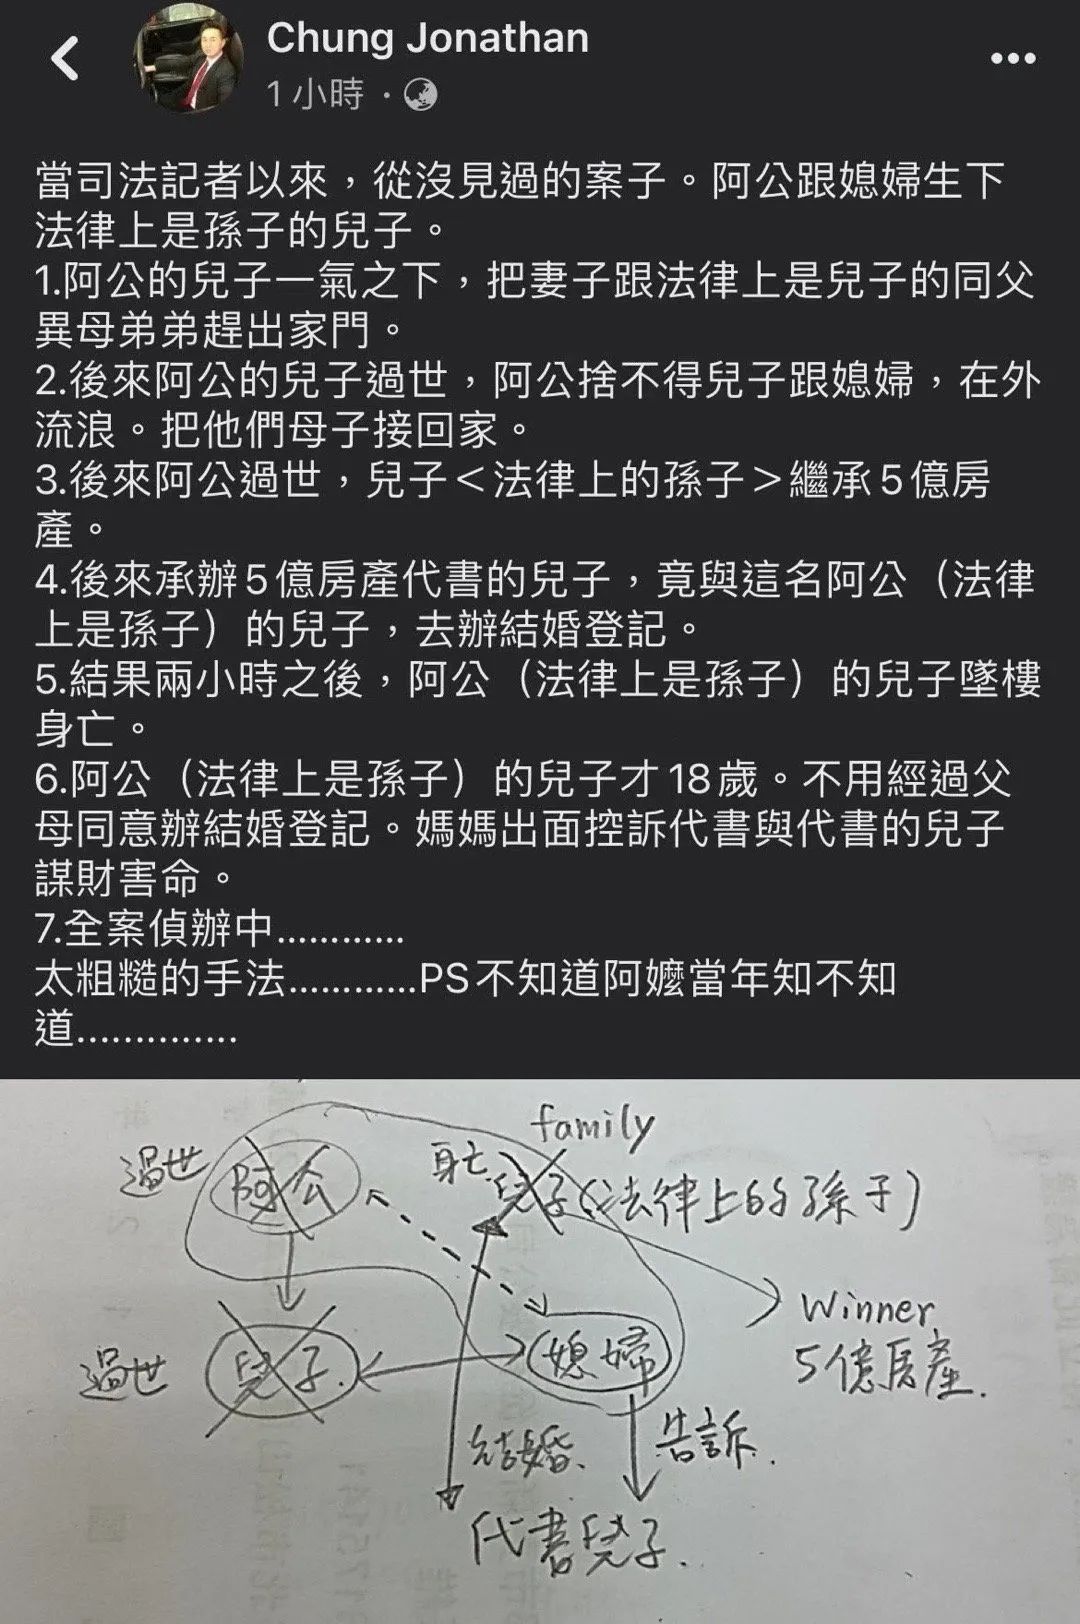 Chung Jonathan
1 小時 ·
當司法記者以來，從沒見過的案子。阿公跟媳婦生下
法律上是孫子的兒子。
1.阿公的兒子一氣之下，把妻子跟法律上是兒子的同父
異母弟弟趕出家門。
2.後來阿公的兒子過世，阿公捨不得兒子跟媳婦，在外
流浪。把他們母子接回家。
3.後來阿公過世，兒子＜法律上的孫子＞繼承5億房
產。
4.後來承辦5億房產代書的兒子，竟與這名阿公（法律
上是孫子）的兒子，去辦結婚登記。
5.結果兩小時之後，阿公（法律上是孫子）的兒子墜樓
身亡。
6.阿公（法律上是孫子）的兒子才18歲。不用經過父
母同意辦結婚登記。媽媽出面控訴代書與代書的兒子
謀財害命。
7.全案偵辦中............
太粗糙的手法............PS不知道阿嬤當年知不知
道..............
family
過世 阿公 身亡 兒子(法律上的孫子)
Winner
過世 兒子. 媳婦 5億房產.
結婚、 告訴.
代書兒子.